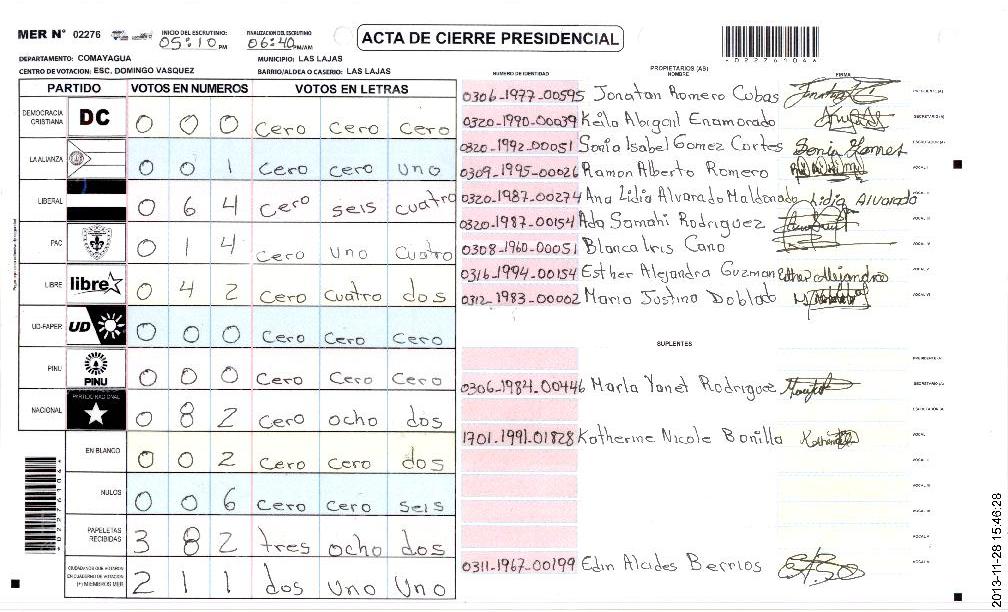 MER N° 02276
INICIO DEL ESCRUTINIO: 05:10 PM
FINALIZACION DEL ESCRUTINIO 06:40 PM/AM
ACTA DE CIERRE PRESIDENCIAL
DEPARTAMENTO: COMAYAGUA
MUNICIPIO: LAS LAJAS
CENTRO DE VOTACION: ESC. DOMINGO VASQUEZ
BARRIO/ALDEA O CASERIO: LAS LAJAS
PARTIDO VOTOS EN NUMEROS VOTOS EN LETRAS
DEMOCRACIA CRISTIANA DC 0 0 0 cero cero cero
LA ALIANZA 0 0 1 cero cero uno
LIBERAL 0 6 4 cero seis cuatro
PAC 0 1 4 cero uno cuatro
LIBRE libre 0 4 2 cero cuatro dos
UD-FAPER UD 0 0 0 cero cero cero
PINU PINU 0 0 0 cero cero cero
NACIONAL PARTIDO NACIONAL 0 8 2 cero ocho dos
EN BLANCO 0 0 2 cero cero dos
NULOS 0 0 6 cero cero seis
PAPELETAS RECIBIDAS 3 8 2 tres ocho dos
CIUDADANOS QUE VOTARON EN CUADERNO DE VOTACION (+) MIEMBROS MER 2 1 1 dos uno uno
NUMERO DE IDENTIDAD
PROPIETARIOS (AS)
NOMBRE
FIRMA
0306-1977-00595 Jonatan Romero Cubas PRESIDENTE (A)
0320-1990-00039 Keila Abigail Enamorado SECRETARIO (A)
0320-1992-00051 Sonia Isabel Gomez Cortes Sonia Gomes ESCRUTADOR (A)
0309-1995-00026 Ramon Alberto Romero VOCAL I
0320-1987-00274 Ana Lidia Alvarado Maldonado Lidia Alvarado
0320-1987-00154 Ada Samahi Rodriguez
0308-1960-00051 Blanca Iris Cano
0316-1994-00154 Esther Alejandra Guzman Esther Alejandra
0312-1983-00002 Maria Justina Doblad
SUPLENTES
PRESIDENTE (A)
0306-1984-00446 Marla Yanet Rodriguez SECRETARIO (A)
ESCRUTADOR (A)
1701-1991-01828 Katherine Nicole Bonilla
0311-1967-00199 Edin Alcides Berrios
2013-11-28 15:46:28